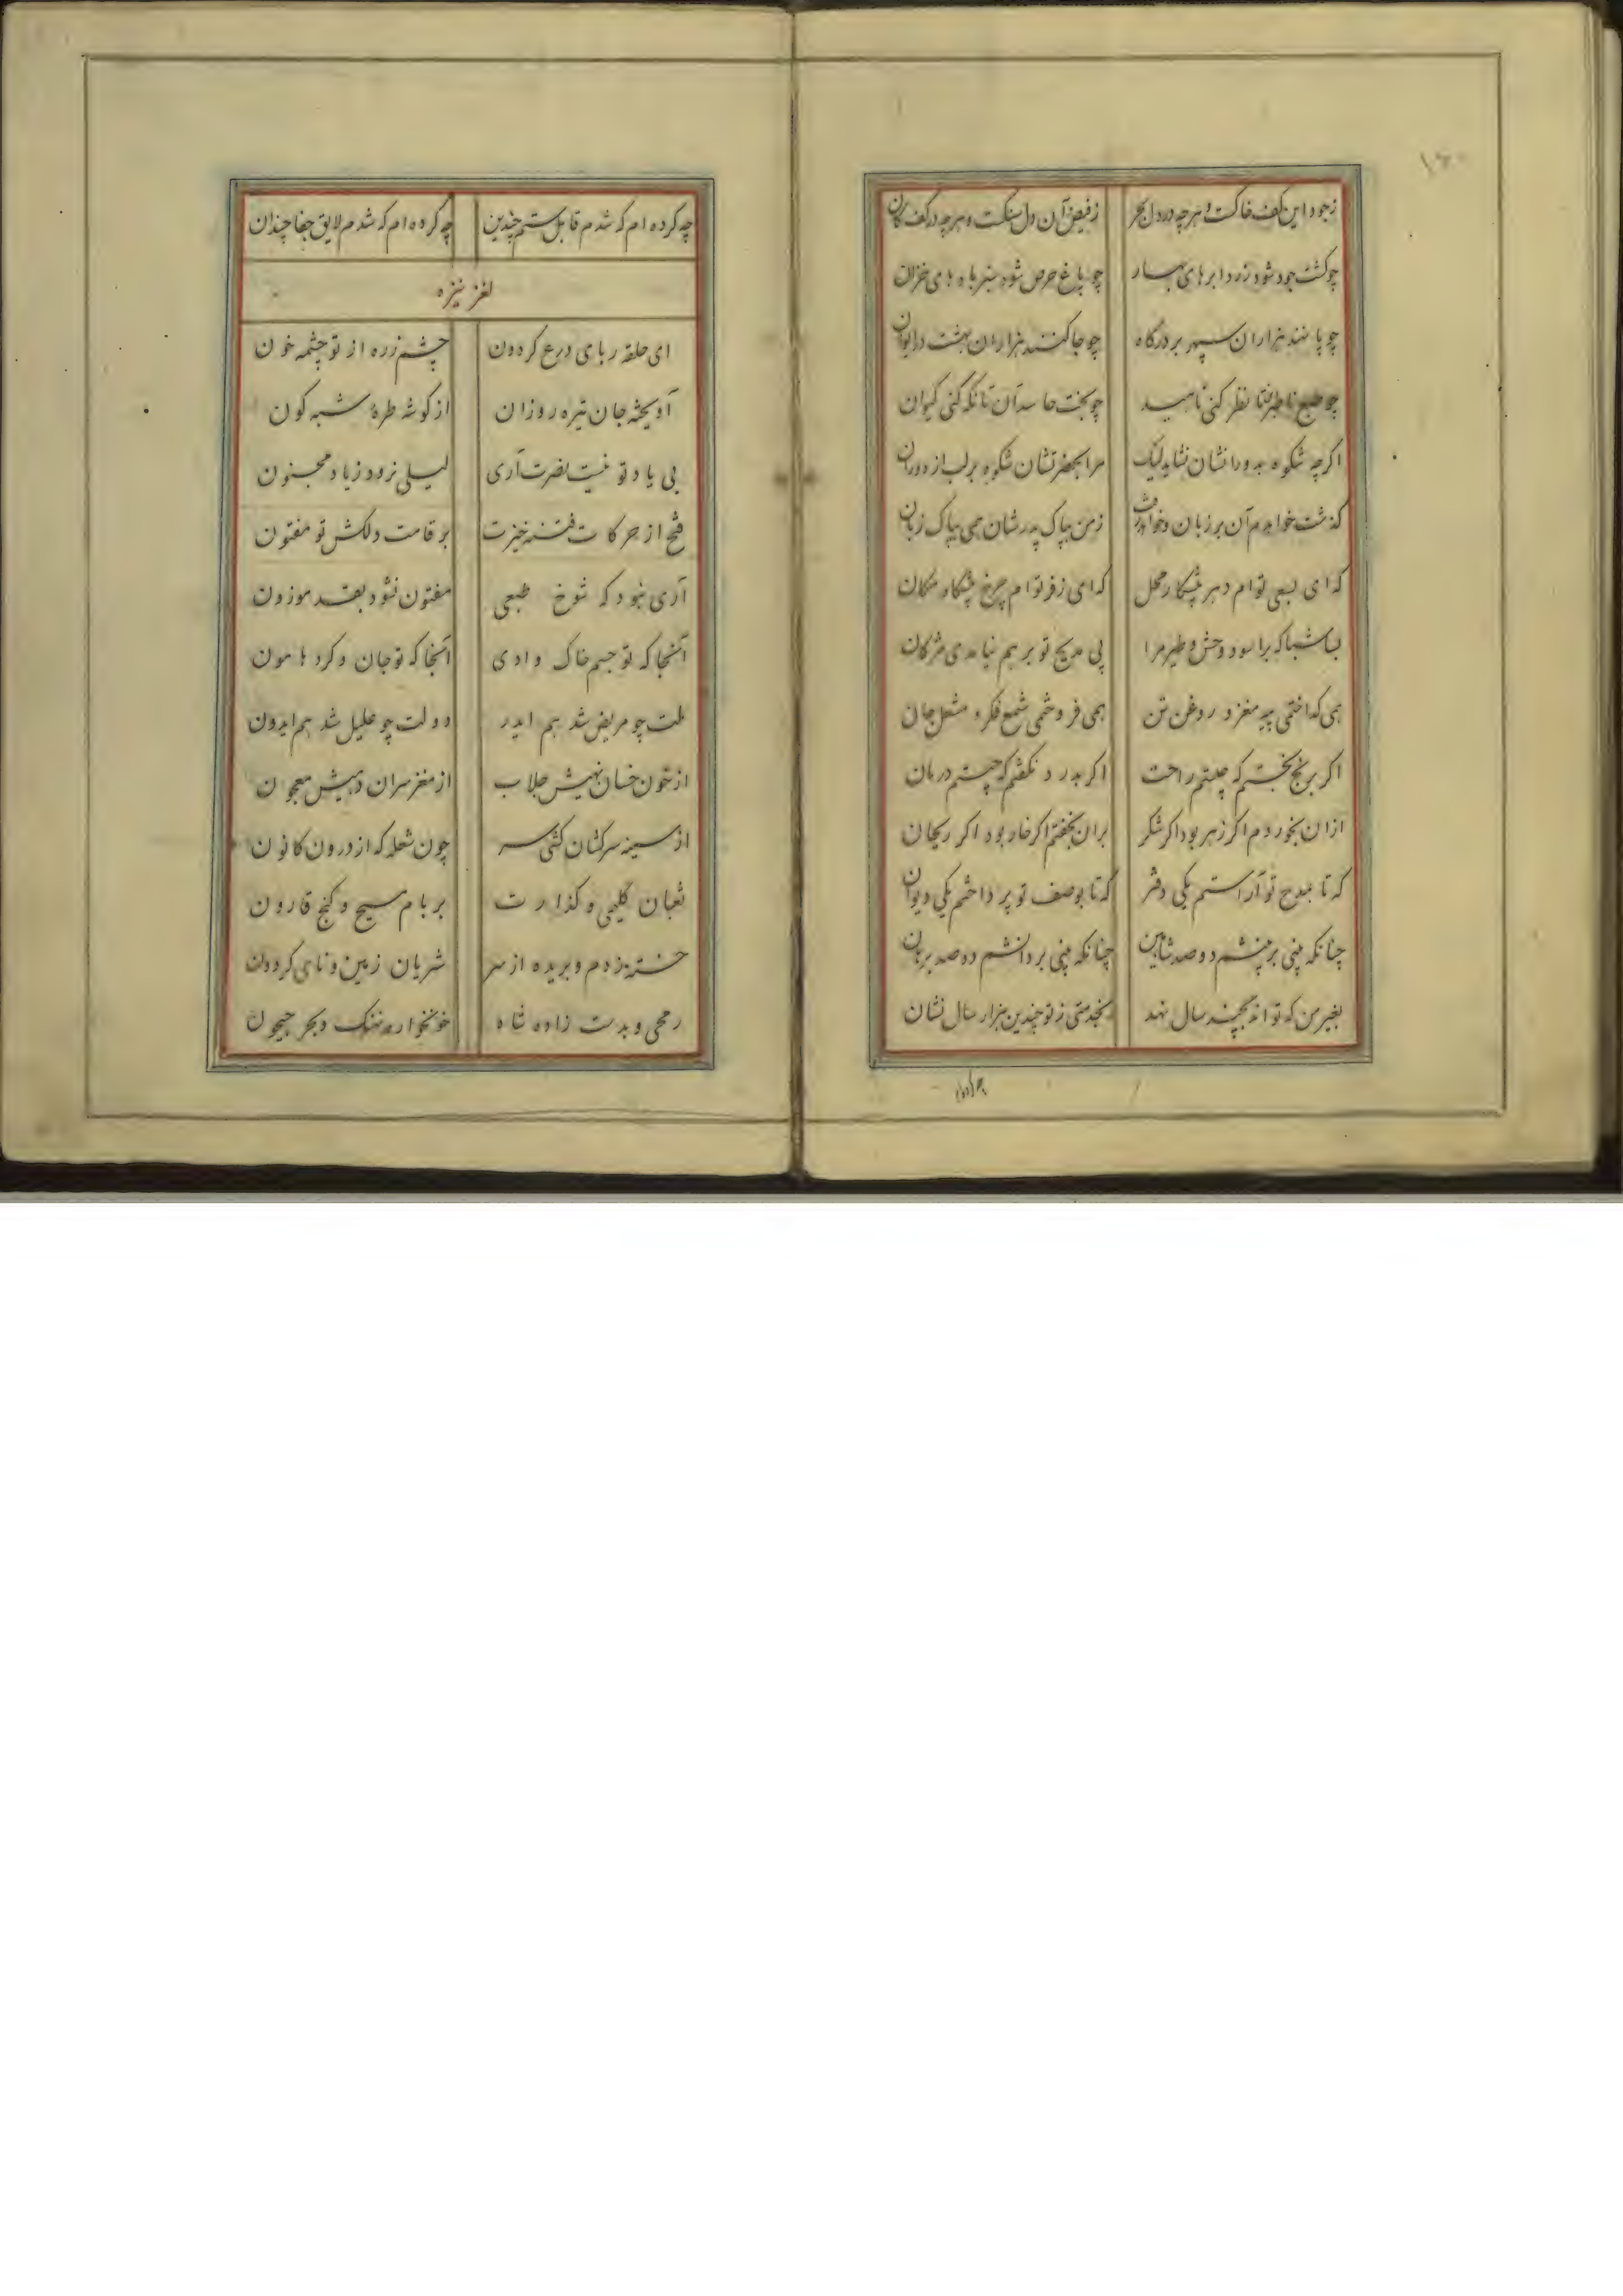 ۱۶۰
زجود این کف خاکت و هرچه در دل بحر زفیض آن دل سنکت و هرچه در کف کان
چو کشت جود شود زرد ابرهای بهار چو باغ حرص شود سبز بادهای خزان
چو پا نهند هزاران سپهر بر درکاه چو جا کنند هزاران بهشت در ایوان
چو طبع نظر کنی ناهید چو بخت حاسد آن تا نکه کنی کیوان
اکرچه شکوه بدورانشان نشاید لیک مرا بحضرتشان شکوه بر لب از دوران
کذشت خواهم آن بر زبان و خواهد زمن بپاک پدرشان همی بپاک زبان
که ای بسعی توام دهر پیشکار محل که ای زفر توام چرخ پیشکاه مکان
بسا شبا که براسود وحش و طیر مرا پی مدیح تو بر هم نیامدی مژکان
همی کداختمی پیه مغز و روغن تن همی فروختمی شمع فکر و مشعل جان
اکر برنج نجستم که چیستم راحت اکر بدرد نکفتم که چیستم درمان
ازان بخوردم اکر زهر بود اکر شکر بران بخفتم اکر خار بود اکر ریحان
که تا بمدح تو آراستم یکی دفتر که تا بوصف تو پرداختم یکی دیوان
چنانکه بینی دو صد شاهین چنانکه بینی دو صد
بغیر من که تواند بچند سال نهد بخدمتی ز تو چندین هزار سال نشان
چه کرده ام که شدم قابل ستم چندین چه کرده ام که شدم لایق جفا چندان
لغز نیزه
ای حلقه ربای درع کردون چشم زره از تو چشمه خون
آویخته جان تیره روزان از کوشه طره شبه کون
بی یاد تو نیست نصرت آری لیلی نرود زیاد مجنون
فتح از حرکات فتنه خیزت بر قامت دلکش تو مفتون
آری نبود که شوخ طبعی مفتون نشود بقد موزون
آنجا که تو جسم خاک وادی آنجا که تو جان و کرد هامون
ملت چو مریض شد هم ایدر دولت چو علیل شد هم ایدون
از خون خسان نهیش جلاب از مغز سران دهیش معجون
از سینه سرکشان کشی سر چون شعله که از درون کانون
ثعبان کلیمی و کذارت بر بام مسیح و کنج قارون
خسته زدم و بریده از سر شریان زمین و نای کردون
رمحی و بدست زاده شاه خونخواره نهنک و بحر جیحون